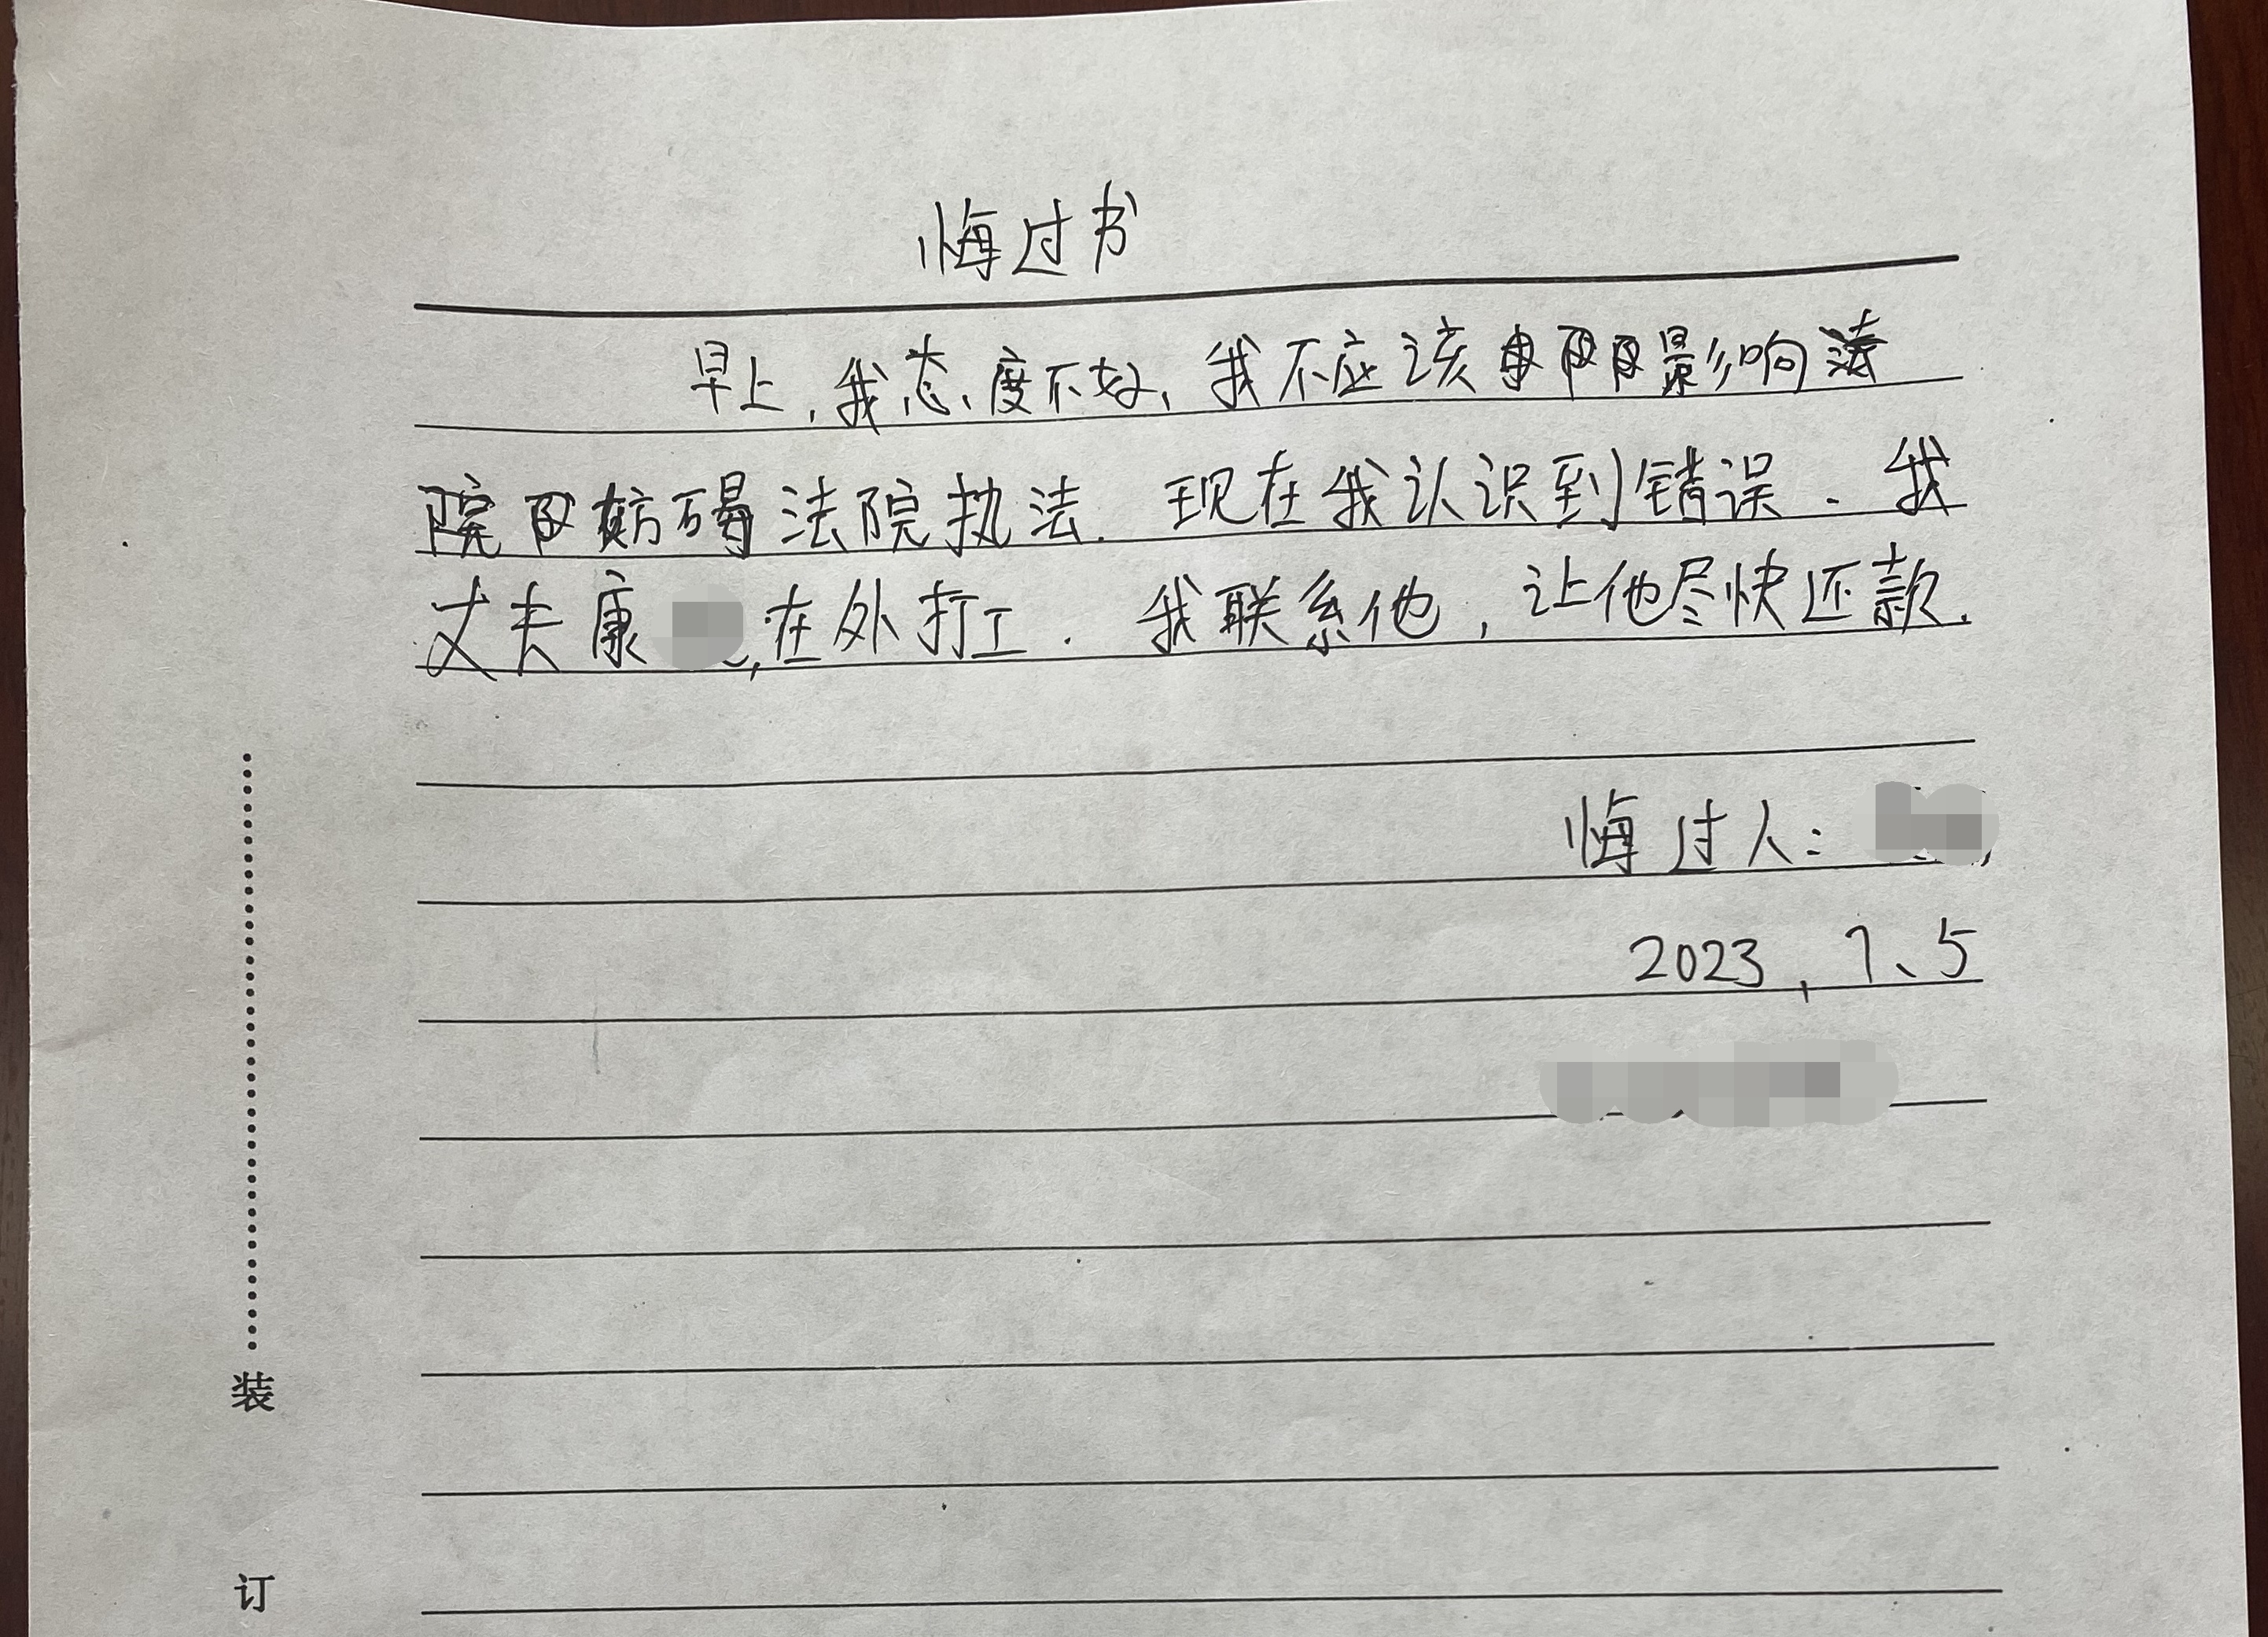 悔过书
早上，我态度不好，我不应该影响法
院妨碍法院执法.现在我认识到错误.我
丈夫康 ,在外打工.我联系他,让他尽快还款.
悔过人:
2023,7、5
装
订